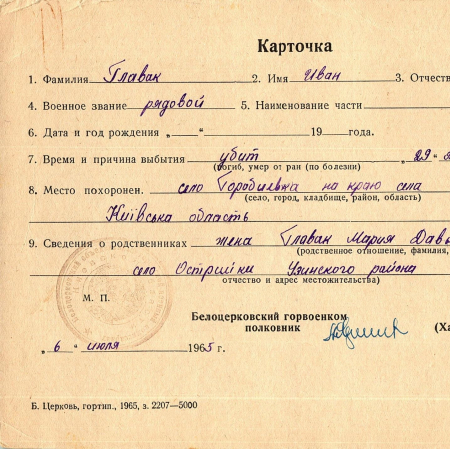 Карточка
1. Фамилия Главак 2. Имя Иван 3. Отчество
4. Военное звание рядовой 5. Наименование части
6. Дата и год рождения „ “ 19 года.
7. Время и причина выбытия убит „29“
(погиб, умер от ран (по болезни)
8. Место похоронен. село Городиевка на краю села
(село, город, кладбище, район, область)
Київська область
9. Сведения о родственниках жена Главак Мария Давы
(родственное отношение, фамилия,
село Острийки Узинского района
отчество и адрес местожительства)
М. П.
Белоцерковский горвоенком
полковник (Ха
„6“ июля 1965 г.
Б. Церковь, гортип., 1965, з. 2207—5000